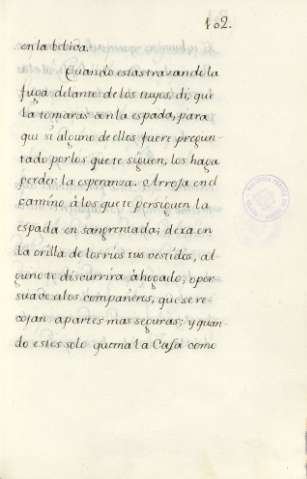 102.
en la bebida.
Quando estas trazando la
fuga delante de los tuyos, di, que
la tomaràs àn la espada, para
que si alguno de elles fuere pregun-
tado por los que te siguen, los haga
perder la esperanza. Arroja en el
camino à los que te persiguen la
espada en sangrentada; dexa en
la orilla de los rios tus vestidos, al
guno te discurrirà ahogado; o per
suade a los compañeros, que se re
cojan a partes mas seguras; y quan-
do estes solo quema la Casa como